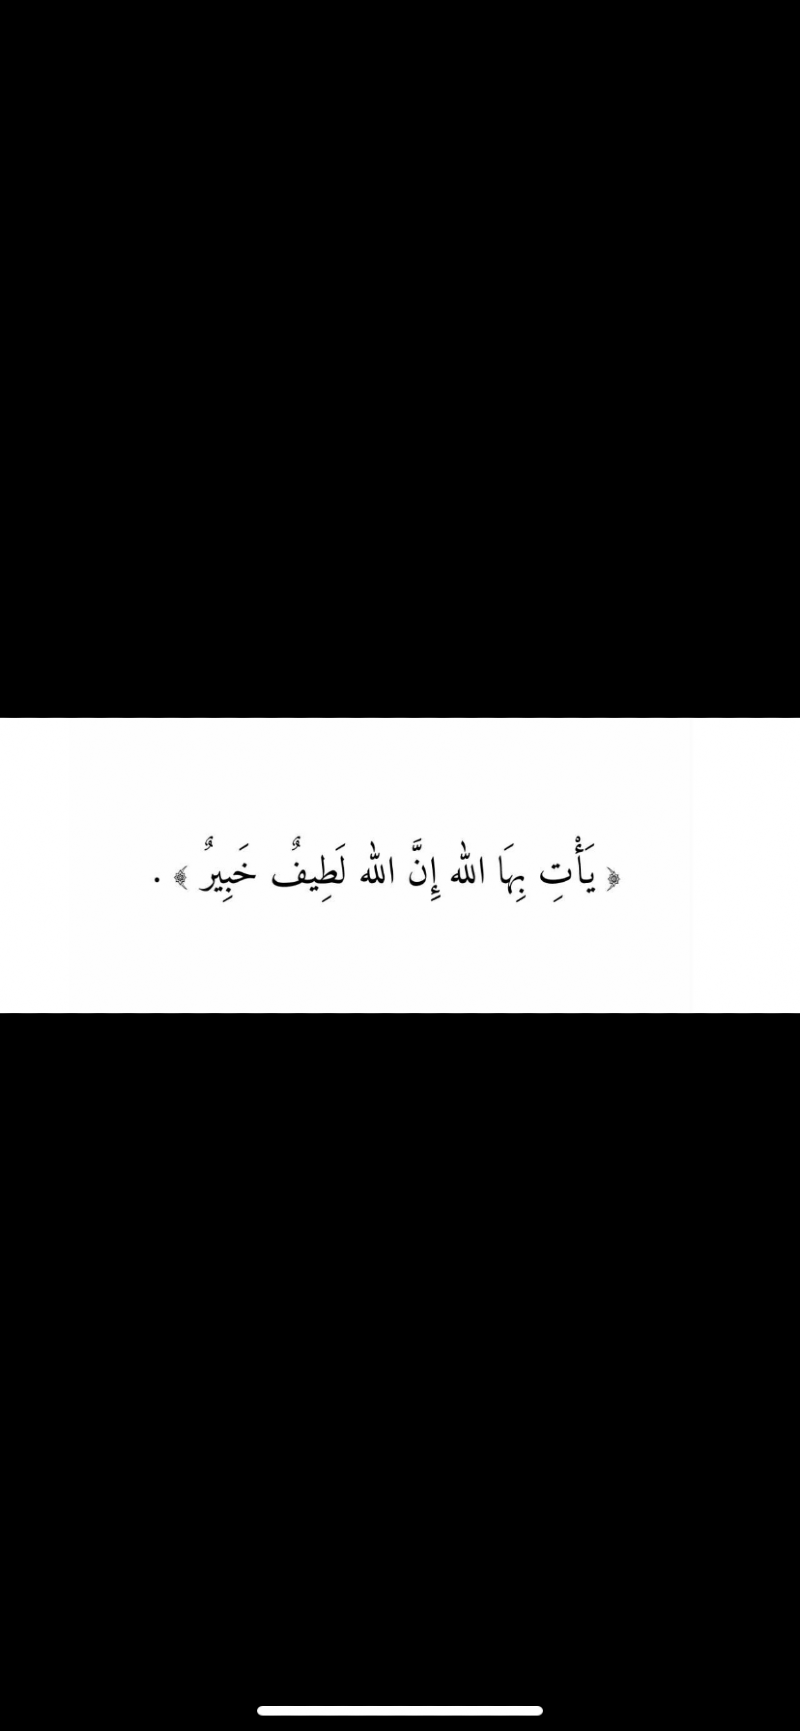 ﴿ يَأْتِ بِهَا الله إِنَّ الله لَطِيفٌ خَبِيرٌ ﴾ .